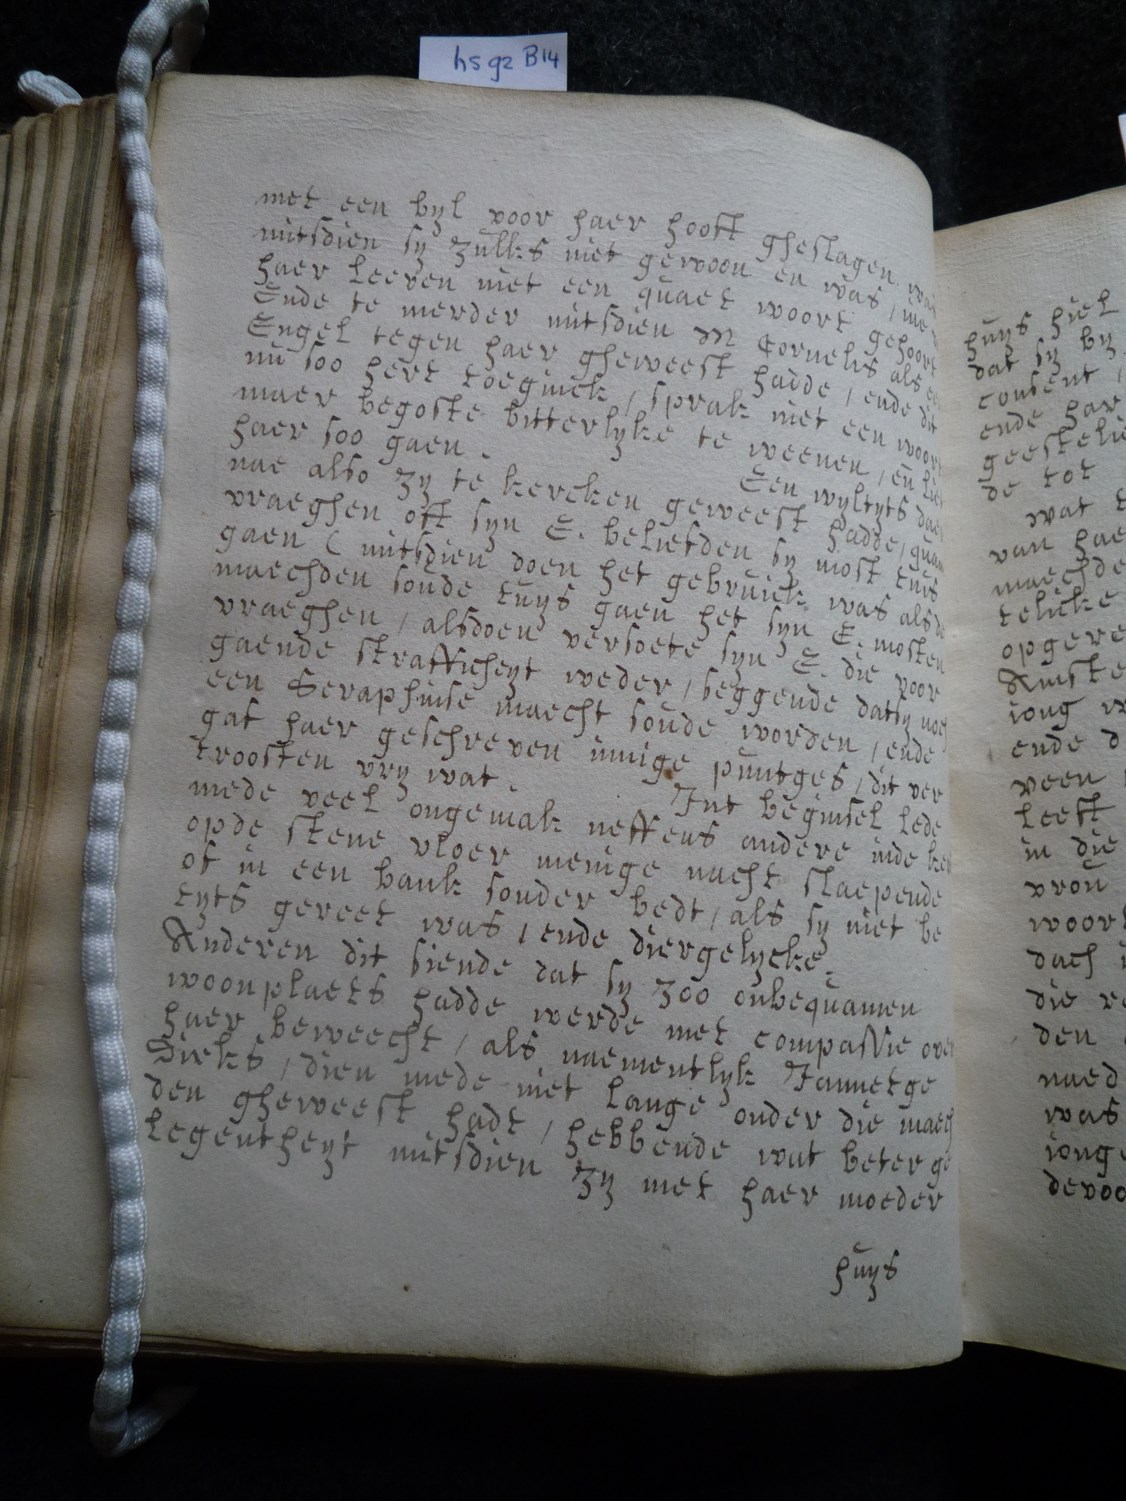 hs 92 B14
met een byl voor haer hooft gheslagen,
mitsdien sy zulks niet gewoon en was,
haer leeven niet een quaet woort gehoort
Ende te meerder mitsdien M Cornelis als
Engel tegen haer gheweest hadde, ende dit
nu soo hert toeginck, sprak niet een woort
maer begoste bitterlyke te weenen, en
haer soo gaen. Een wyltyts daer
nae also zy te kercken geweest hadde, quam
vraeghen oft syn E. beliefden sy most tuis
gaen ( mitsdien doen het gebruick was als de
maechden soude tuys gaen het syn E. mosten
vraeghen, alsdoen versoete syn E. die voor
gaende strafficheyt weder, seggende datsy noch
een Seraphinse maecht soude worden, ende
gaf haer geschreven innige puntges, dit ver
troosten vry wat. Int beginsel lede
mede veel ongemak neffens andere inde
opde stene vloer menige nacht slaepende
of in een bank sonder bedt, als sy niet be
tyts gereet was, ende diergelycke.
Anderen dit siende dat sy zoo onbequamen
woonplaets hadde werde met compassie over
haer beweecht, als naementlyk Jannetge
Dirks, dien mede niet lange onder die maech
den gheweest hadt, hebbende wat beter ge
legentheyt mitsdien zy met haer moeder
huys
huys hiel
dat sy by
consent,
ende haer
de tot
wat
van hae
maechde
telicke
opgere
Amste
iong
ende d
veen
leest
in die
vrou
woort
dach
die
den
naed
was
ionge
devoo